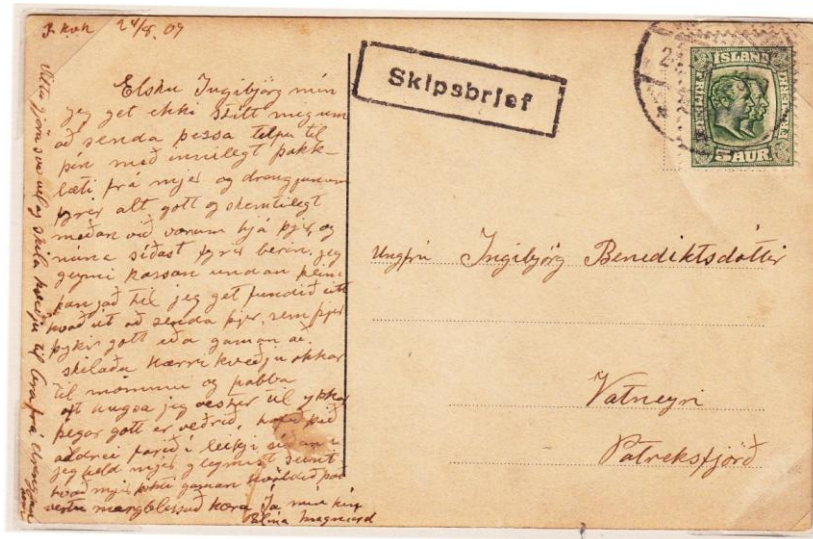 Rvk 24/8. 09
Elsku Ingibjörg mín
jeg get ekki stilt mig um
að senda þessa telpu til
þín með innilegt þakk-
læti frá mjer og drengjunum
fyrir alt gott og skemtilegt
meðan við vorum hjá þjer, og
nuna síðast fyrir berin. jeg
geymi kassan undan þeim
þangað til jeg get fundið eitt
hvað út að senda þjer, sem þjer
þykir gott eða gaman að.
skilaðu kærri kveðju okkar
til mömmu og pabba
oft hugsa jeg vestur til ykkar
þegar gott er veðrið, hafið þið
aldrei farið í leiki síðan
jeg held mjer gleymist seint
hvað mjer þótti gaman kvöldið það
vertu margblessuð kæra
Elína Magnusd
Viltu gjöra svo vel og skila kveðju til frá
Skipsbrjef
2
ÍSLAND
5 AUR
Ungfrú Ingibjörg Benediktsdóttir
Vatneyri
Patreksfjörð